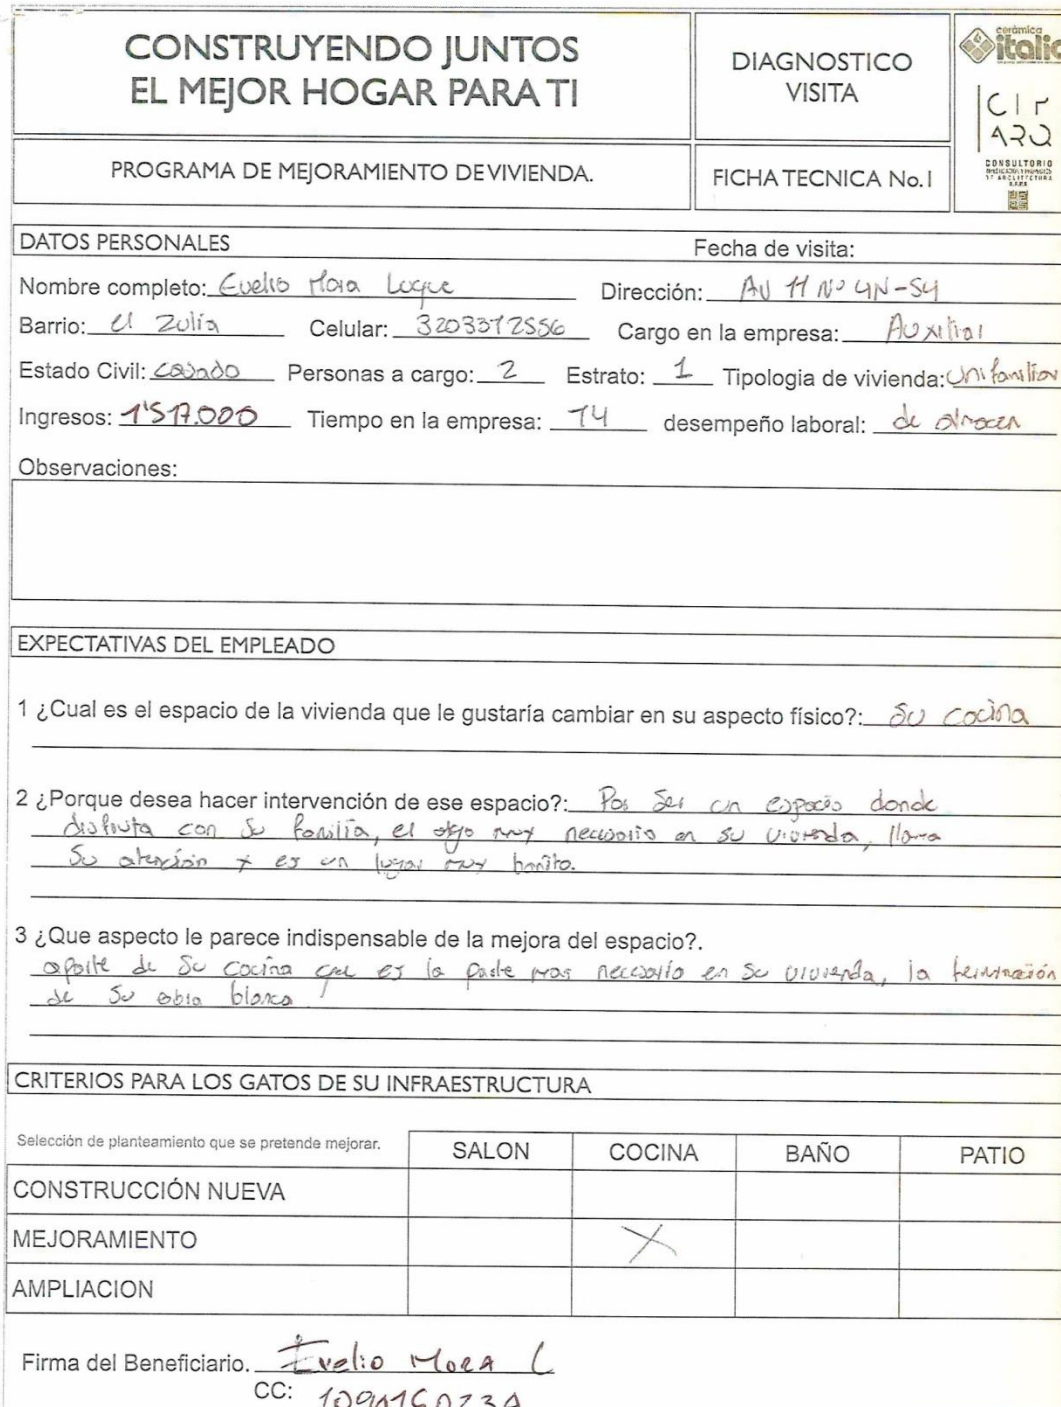 CONSTRUYENDO JUNTOS
EL MEJOR HOGAR PARA TI
DIAGNOSTICO
VISITA
cerámica
italia
CIF
ARQ
CONSULTORIO
PROGRAMA DE MEJORAMIENTO DE VIVIENDA.
FICHA TECNICA No.1
DATOS PERSONALES
Fecha de visita:
Nombre completo: Evelio Mora Luque Dirección: AV 11 Nº 4N-54
Barrio: el Zulia Celular: 3203312556 Cargo en la empresa: Auxiliar
Estado Civil: casado Personas a cargo: 2 Estrato: 1 Tipologia de vivienda: Unifamiliar
Ingresos: 1'517.000 Tiempo en la empresa: 14 desempeño laboral: de almacen
Observaciones:
EXPECTATIVAS DEL EMPLEADO
1 ¿Cual es el espacio de la vivienda que le gustaría cambiar en su aspecto físico?: Su cocina
2 ¿Porque desea hacer intervención de ese espacio?: Por ser un espacio donde
disfruta con su familia, el algo muy necesario en su vivienda, llama
su atención y es un lugar muy bonito.
3 ¿Que aspecto le parece indispensable de la mejora del espacio?.
aparte de su cocina que es la parte mas necesario en su vivienda, la terminación
de su obra blanca
CRITERIOS PARA LOS GATOS DE SU INFRAESTRUCTURA
Selección de planteamiento que se pretende mejorar. SALON COCINA BAÑO PATIO
CONSTRUCCIÓN NUEVA
MEJORAMIENTO X
AMPLIACION
Firma del Beneficiario. Evelio MORA L
CC: